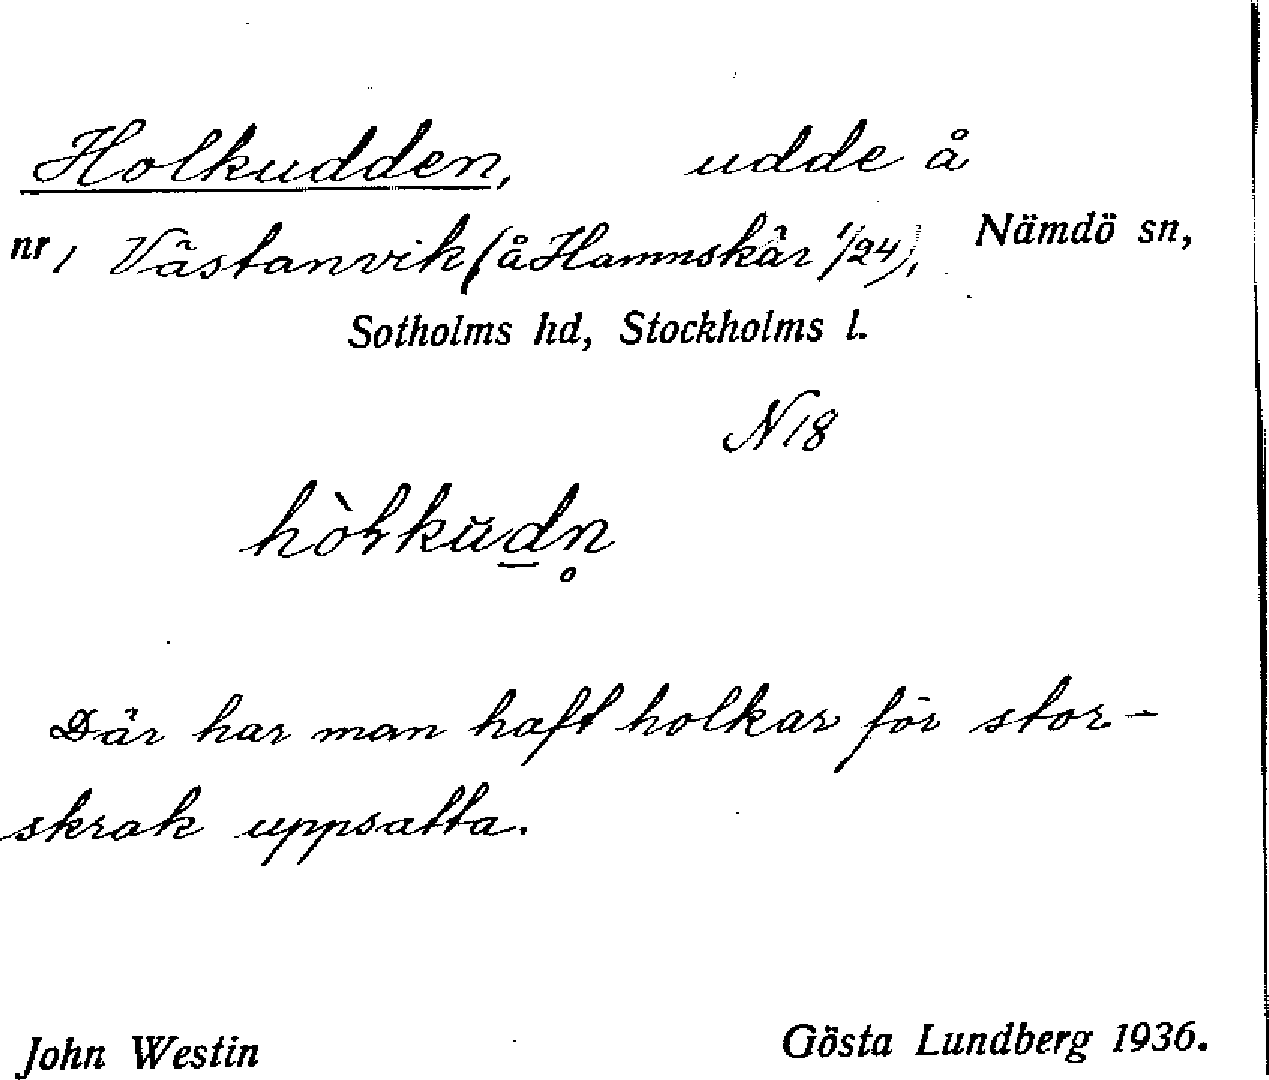 Holkudden, udde å
nr 1 Västanvik (å Hamnskär 1/24), Nämdö sn,
Sotholms hd, Stockholms l.
N 18
Där har man haft holkar för stor-
skrak uppsatta.
John Westin Gösta Lundberg 1936.